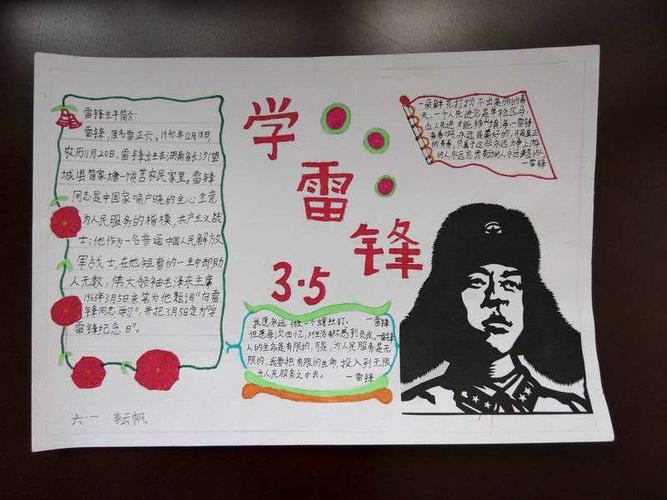 雷锋生平简介:
雷锋，原名雷正兴。1940年12月18日，
农历11月20日，雷锋出生在湖南省长沙望
城县简家塘一个贫苦农民家里。雷锋
同志是中国家喻户晓的全心全意
为人民服务的楷模，共产主义战
士；他作为一名普通中国人民解放
军战士，在他短暂的一生中却助
人无数，伟大领袖毛泽东主席
1963年3月5日亲笔为他题词"向雷
锋同志学习"，并把3月5日定为"学
雷锋纪念日"。
学
雷
锋
3·5
一朵鲜花打扮不出美丽的春
天，一个人先进总是单枪匹马，
众人先进才能移山填海。—雷锋
青春啊，永远是美好的，可是真正
的青春，只属于这些永远力争上游
的人，永远忘我劳动的人，永远谦虚的人
—雷锋
我愿永远做一个螺丝钉。—雷锋
但愿每次回忆，对生活都不感到负疚。—雷锋
人的生命是有限的，可是，为人民服务是无
限的，我要把有限的生命，投入到无限
为人民服务之中去。
—雷锋
六·一 李云帆